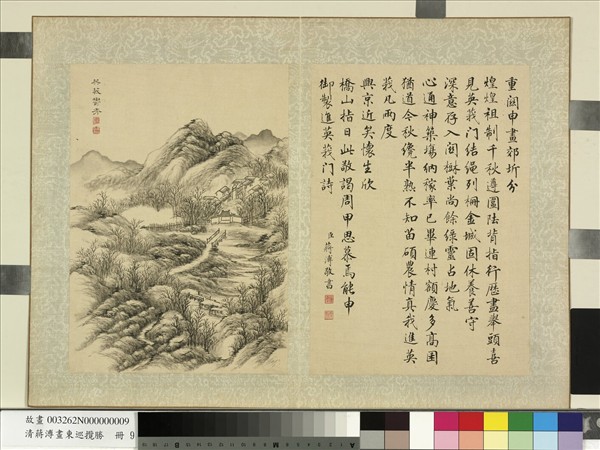 重闕申畫郊圻分
煌煌祖制千秋遵圍陸背指行歷畫舉頭喜
見英莪門結繩列柵金城固休養善守
深意存入関樾葉尚餘綠靈占地氣
心通神築場納稼率已畢連村額慶多高囷
猶道今秋纔半熟不知苗碩農情真我進英
莪凡兩度
興京近矣懷生欣
橋山指日此敬謁周甲思慕焉能申
御製進英莪門詩
臣蔣溥敬書
英莪
故畫 003262N000000009
清蔣溥畫東巡攬勝　冊 9